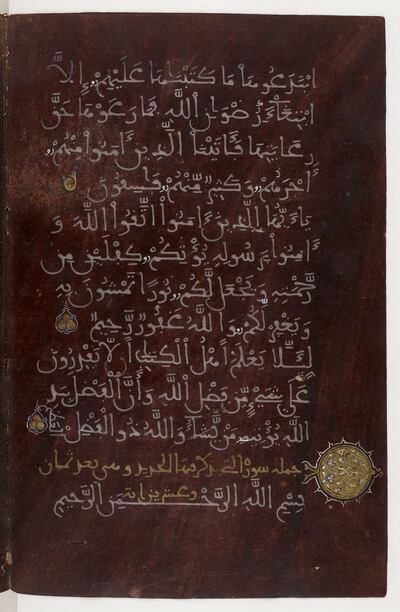 ابْتَدَعُوهَا مَا كَتَبْنَاهَا عَلَيْهِمُ إِلَّا
ابْتِغَاءَ رِضْوَانِ اللَّهِ فَمَا رَعَوْهَا حَقَّ
رِعَايَتِهَا فَآتَيْنَا الَّذِينَ آمَنُوا مِنْهُمْ
أَجْرَهُمْ وَكَثِيرٌ مِّنْهُمْ فَاسِقُونَ
يَا أَيُّهَا الَّذِينَ آمَنُوا اتَّقُوا اللَّهَ وَ
آمِنُوا بِرَسُولِهِ يُؤْتِكُمْ كِفْلَيْنِ مِن
رَّحْمَتِهِ وَيَجْعَل لَّكُمْ نُورًا تَمْشُونَ بِهِ
وَيَغْفِرْ لَكُمْ وَاللَّهُ غَفُورٌ رَّحِيمٌ
لِّئَلَّا يَعْلَمَ أَهْلُ الْكِتَابِ أَلَّا يَقْدِرُونَ
عَلَىٰ شَيْءٍ مِّن فَضْلِ اللَّهِ وَأَنَّ الْفَضْلَ بِيَدِ
اللَّهِ يُؤْتِيهِ مَنْ يَشَاءُ وَاللَّهُ ذُو الْفَضْلِ
جملة سورة التي يذكر فيها الحديد وهي ثمان
وعشرين آية
بِسْمِ اللَّهِ الرَّحْمَٰنِ الرَّحِيمِ